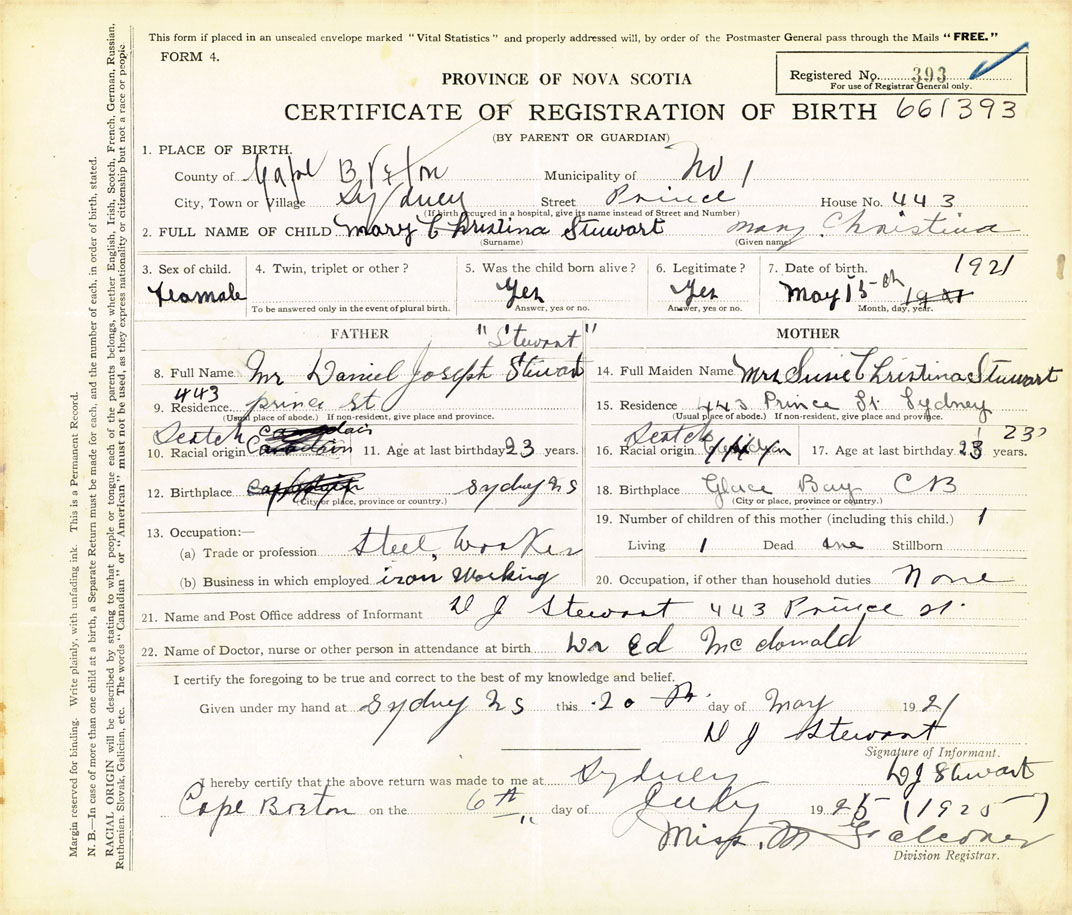 This form if placed in an unsealed envelope marked "Vital Statistics" and properly addressed will, by order of the Postmaster General pass through the Mails "FREE."
FORM 4.
Registered No. 393
For use of Registrar General only.
PROVINCE OF NOVA SCOTIA
CERTIFICATE OF REGISTRATION OF BIRTH 661393
(BY PARENT OR GUARDIAN)
1. PLACE OF BIRTH.
County of Cape Breton Municipality of No 1
City, Town or Village Sydney Street Prince House No. 443
(If birth occurred in a hospital, give its name instead of Street and Number)
2. FULL NAME OF CHILD Mary Christina Stuwart Mary Christina
(Surname) (Given name)
3. Sex of child. 4. Twin, triplet or other? 5. Was the child born alive? 6. Legitimate? 7. Date of birth. 1921
Feamale Yes Yes May 15th
To be answered only in the event of plural birth. Answer, yes or no. Answer, yes or no. Month, day, year.
FATHER "Stewart" MOTHER
8. Full Name Mr Daniel Joseph Stuwart 14. Full Maiden Name Mrs Susie Christina Stuwart
443
9. Residence prince st 15. Residence 443 Prince St. Sydney
(Usual place of abode.) If non-resident, give place and province. (Usual place of abode.) If non-resident, give place and province.
Scotch Scotch 23
10. Racial origin 11. Age at last birthday 23 years. 16. Racial origin 17. Age at last birthday 23 years.
12. Birthplace Sydney NS 18. Birthplace Glace Bay CB
(City or place, province or country.) (City or place, province or country.)
13. Occupation:— 19. Number of children of this mother (including this child.) 1
(a) Trade or profession Steel, Worker Living 1 Dead one Stillborn
(b) Business in which employed iron Working 20. Occupation, if other than household duties None
21. Name and Post Office address of Informant D J Stewart 443 Prince st.
22. Name of Doctor, nurse or other person in attendance at birth Dr Ed McDonald
I certify the foregoing to be true and correct to the best of my knowledge and belief.
Given under my hand at Sydney NS this 20 th. day of May 1921
D J Stewart
Signature of Informant.
D J Stewart
I hereby certify that the above return was made to me at Sydney
Cape Breton on the 6th day of July 1925 (1925)
Miss. M Falconer
Division Registrar.
Margin reserved for binding. Write plainly, with unfading ink. This is a Permanent Record.
N. B.—In case of more than one child at a birth, a Separate Return must be made for each, and the number of each, in order of birth, stated.
RACIAL ORIGIN will be described by stating to what people or tongue each of the parents belongs, whether English, Irish, Scotch, French, German, Russian,
Ruthenian, Slovak, Galician, etc. The words "Canadian" or "American" must not be used, as they express nationality or citizenship but not a race or people